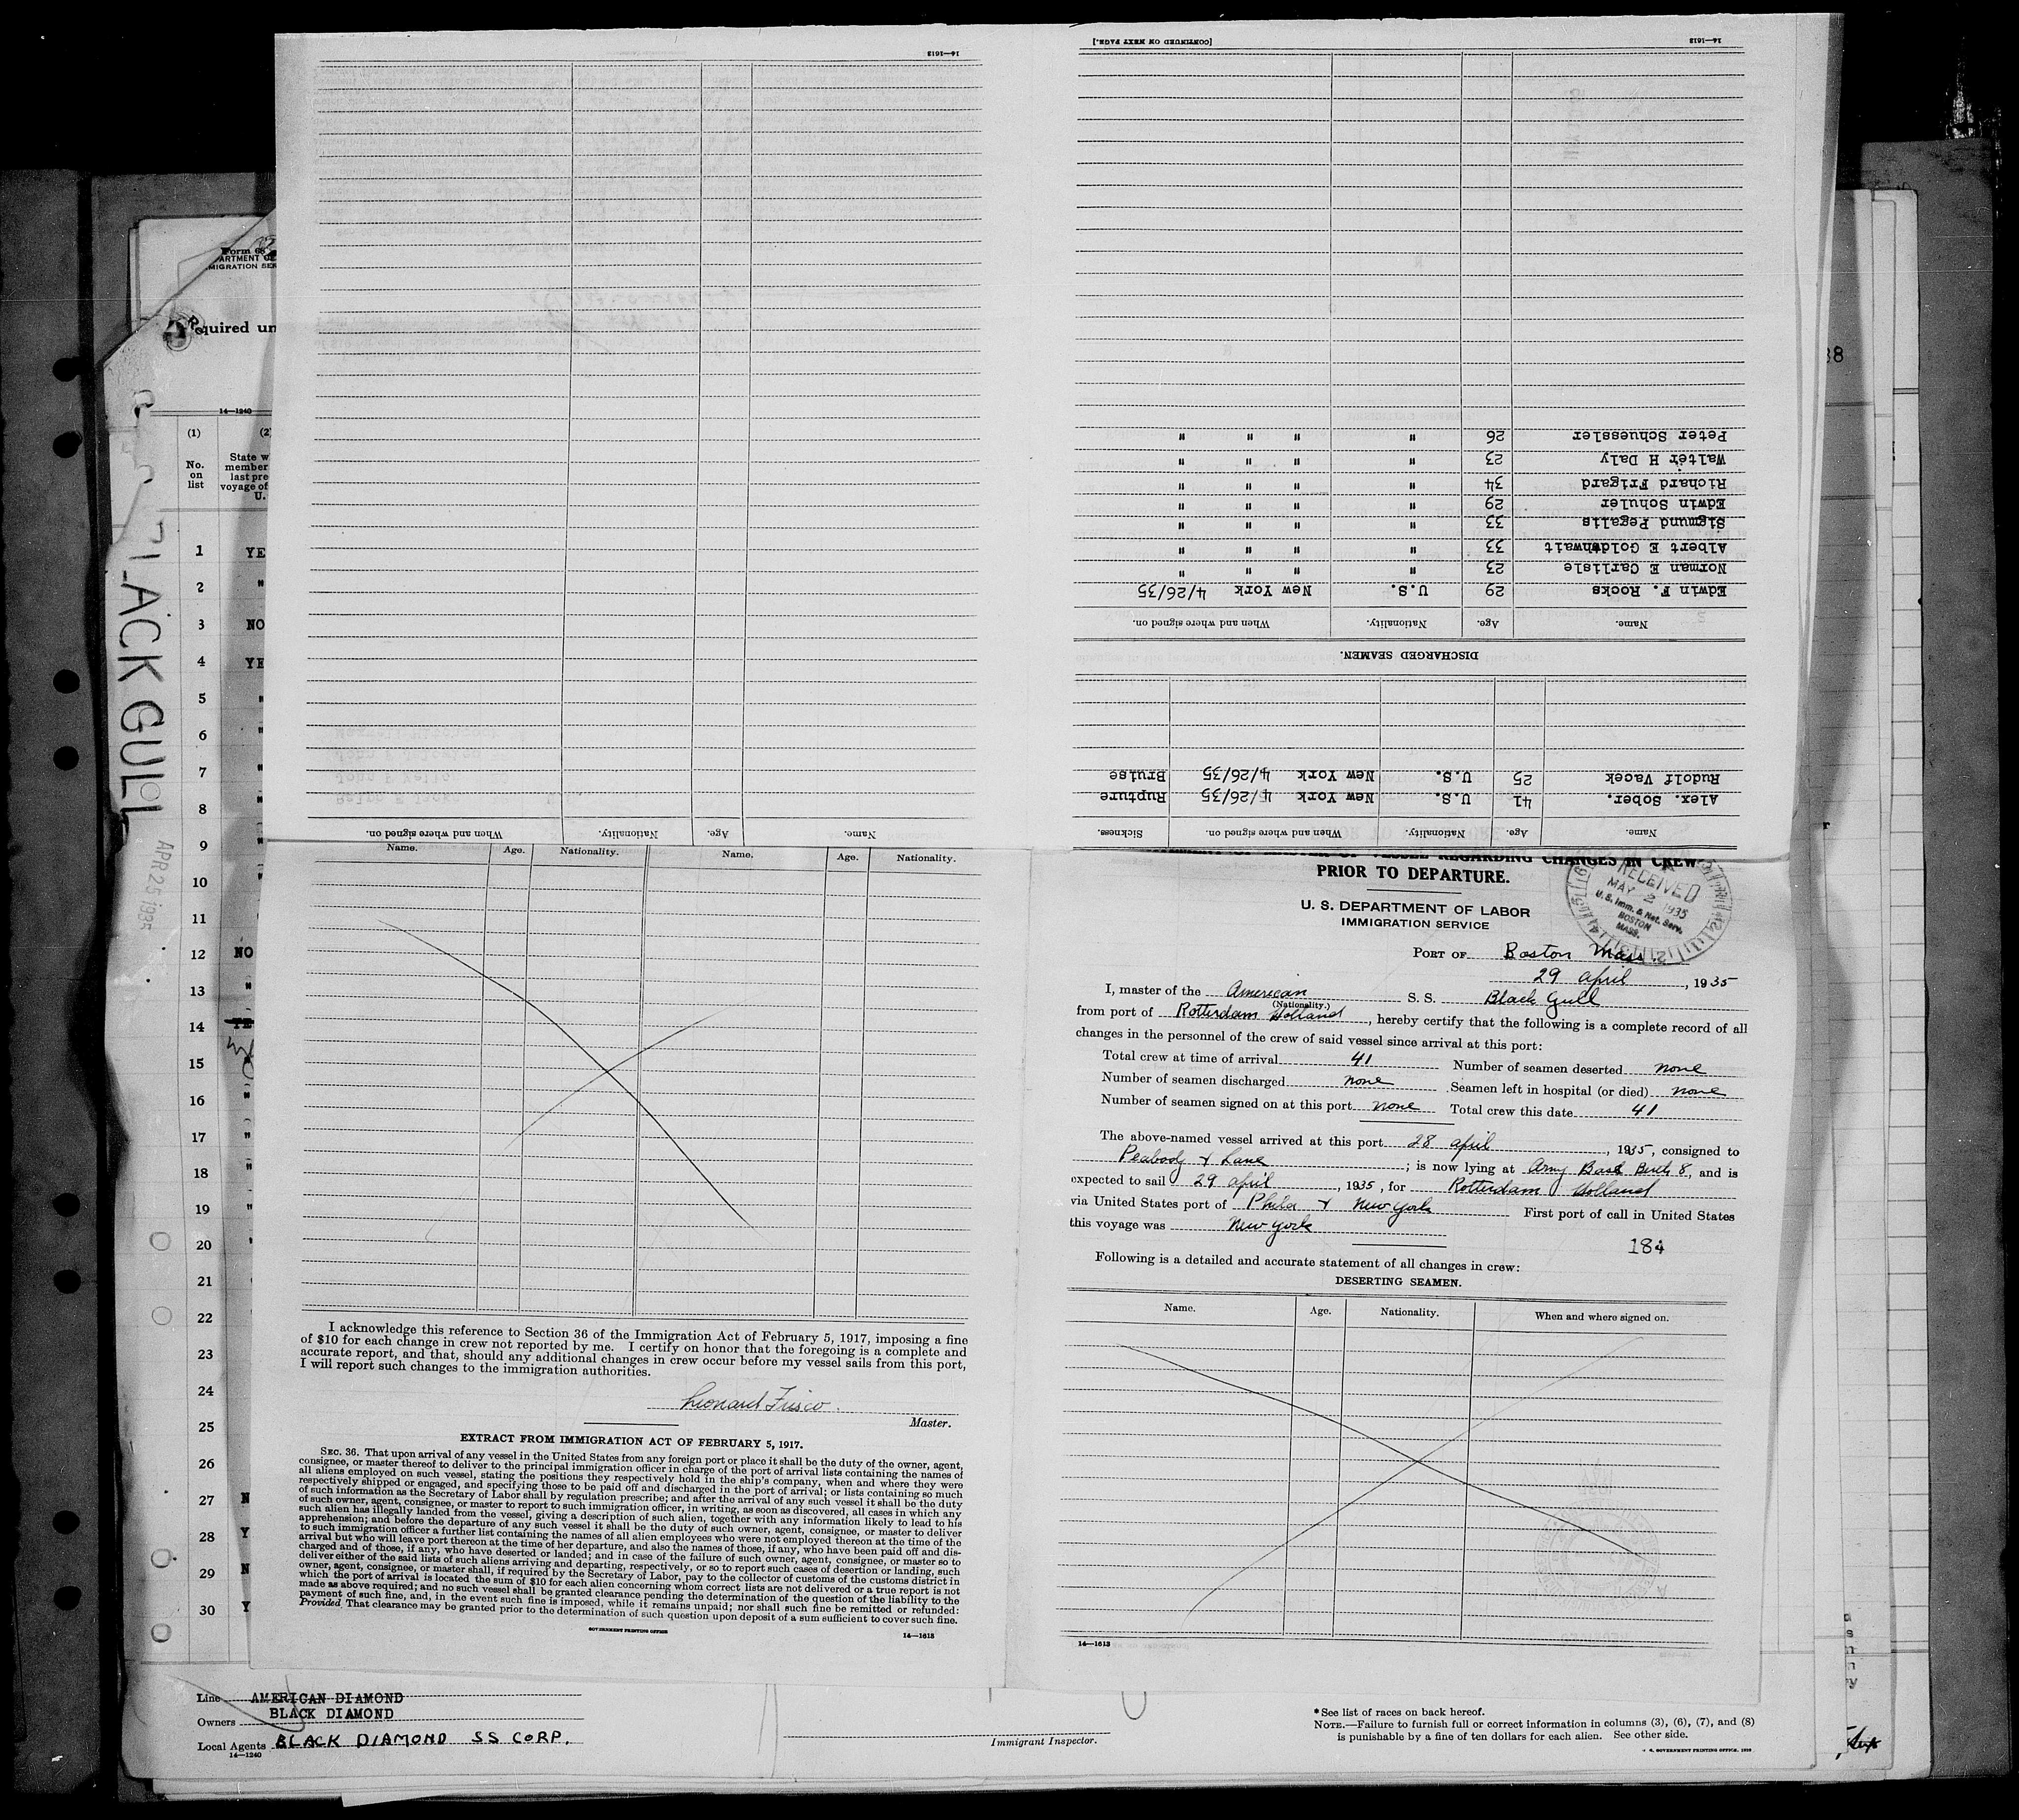 14—1613
[CONTINUED ON NEXT PAGE.]
14—1613
Peter Schuessler 26 " " " "
Walter H Daly 23 " " " "
Richard Frigard 34 " " " "
Edwin Schuler 29 " " " "
Sigmund Pegalis 33 " " " "
Albert E Goldthwait 33 " " " "
Norman E Carlisle 23 " " " "
Edwin F. Rocks 29 U.S. New York 4/26/35
Name. Age. Nationality. When and where signed on.
DISCHARGED SEAMEN.
Rudolf Vacek 25 U.S. New York 4/26/35 Bruise
Alex. Sober. 41 U.S. New York 4/26/35 Rupture
Name. Age. Nationality. When and where signed on. Sickness.
Name. Age. Nationality. When and where signed on.
Form 68
ARTMENT OF
MIGRATION SER
quired un
14—1240
(1) (2)
No. on list
State w
member
last pre
voyage of
U.
BLACK GULL
APR 25 1935
1 YE
2 "
3 NO
4 YE
5 "
6 "
7 "
8 "
9 "
10 "
11
12 NO
13 "
14 YE
15 "
16 "
17 "
18 "
19 "
20 "
21
22
23
24
25
26
27 N
28 Y
29 N
30 Y
38
Name. Age. Nationality. Name. Age. Nationality.
I acknowledge this reference to Section 36 of the Immigration Act of February 5, 1917, imposing a fine
of $10 for each change in crew not reported by me. I certify on honor that the foregoing is a complete and
accurate report, and that, should any additional changes in crew occur before my vessel sails from this port,
I will report such changes to the immigration authorities.
Leonard Frisco.
Master.
EXTRACT FROM IMMIGRATION ACT OF FEBRUARY 5, 1917.
SEC. 36. That upon arrival of any vessel in the United States from any foreign port or place it shall be the duty of the owner, agent,
consignee, or master thereof to deliver to the principal immigration officer in charge of the port of arrival lists containing the names of
all aliens employed on such vessel, stating the positions they respectively hold in the ship's company, when and where they were
respectively shipped or engaged, and specifying those to be paid off and discharged in the port of arrival; or lists containing so much
of such information as the Secretary of Labor shall by regulation prescribe; and after the arrival of any such vessel it shall be the duty
of such owner, agent, consignee, or master to report to such immigration officer, in writing, as soon as discovered, all cases in which any
such alien has illegally landed from the vessel, giving a description of such alien, together with any information likely to lead to his
apprehension; and before the departure of any such vessel it shall be the duty of such owner, agent, consignee, or master to deliver
to such immigration officer a further list containing the names of all alien employees who were not employed thereon at the time of the
arrival but who will leave port thereon at the time of her departure, and also the names of those, if any, who have been paid off and dis-
charged and of those, if any, who have deserted or landed; and in case of the failure of such owner, agent, consignee, or master so to
deliver either of the said lists of such aliens arriving and departing, respectively, or so to report such cases of desertion or landing, such
owner, agent, consignee, or master shall, if required by the Secretary of Labor, pay to the collector of customs of the customs district in
which the port of arrival is located the sum of $10 for each alien concerning whom correct lists are not delivered or a true report is not
made as above required; and no such vessel shall be granted clearance pending the determination of the question of the liability to the
payment of such fine, and, in the event such fine is imposed, while it remains unpaid; nor shall such fine be remitted or refunded:
Provided That clearance may be granted prior to the determination of such question upon deposit of a sum sufficient to cover such fine.
GOVERNMENT PRINTING OFFICE 14—1613
VESSEL REGARDING CHANGES IN CREW
PRIOR TO DEPARTURE.
U. S. DEPARTMENT OF LABOR
IMMIGRATION SERVICE
RECEIVED
MAY 2 1935
U. S. Imm. & Nat. Serv.
BOSTON
MASS.
PORT OF Boston Mass.
29 April, 1935
I, master of the American S. S. Black Gull
(Nationality.)
from port of Rotterdam Holland, hereby certify that the following is a complete record of all
changes in the personnel of the crew of said vessel since arrival at this port:
Total crew at time of arrival 41 Number of seamen deserted none
Number of seamen discharged none Seamen left in hospital (or died) none
Number of seamen signed on at this port none Total crew this date 41
The above-named vessel arrived at this port 28 April, 1935, consigned to
Peabody & Lane; is now lying at Army Base Berth 8, and is
expected to sail 29 April, 1935, for Rotterdam Holland
via United States port of Phila & New York First port of call in United States
this voyage was New York
184
Following is a detailed and accurate statement of all changes in crew:
DESERTING SEAMEN.
Name. Age. Nationality. When and where signed on.
14—1613
Line AMERICAN DIAMOND
Owners BLACK DIAMOND
Local Agents BLACK DIAMOND SS CORP.
14—1240
Immigrant Inspector.
*See list of races on back hereof.
NOTE.—Failure to furnish full or correct information in columns (3), (6), (7), and (8)
is punishable by a fine of ten dollars for each alien. See other side.
GOVERNMENT PRINTING OFFICE